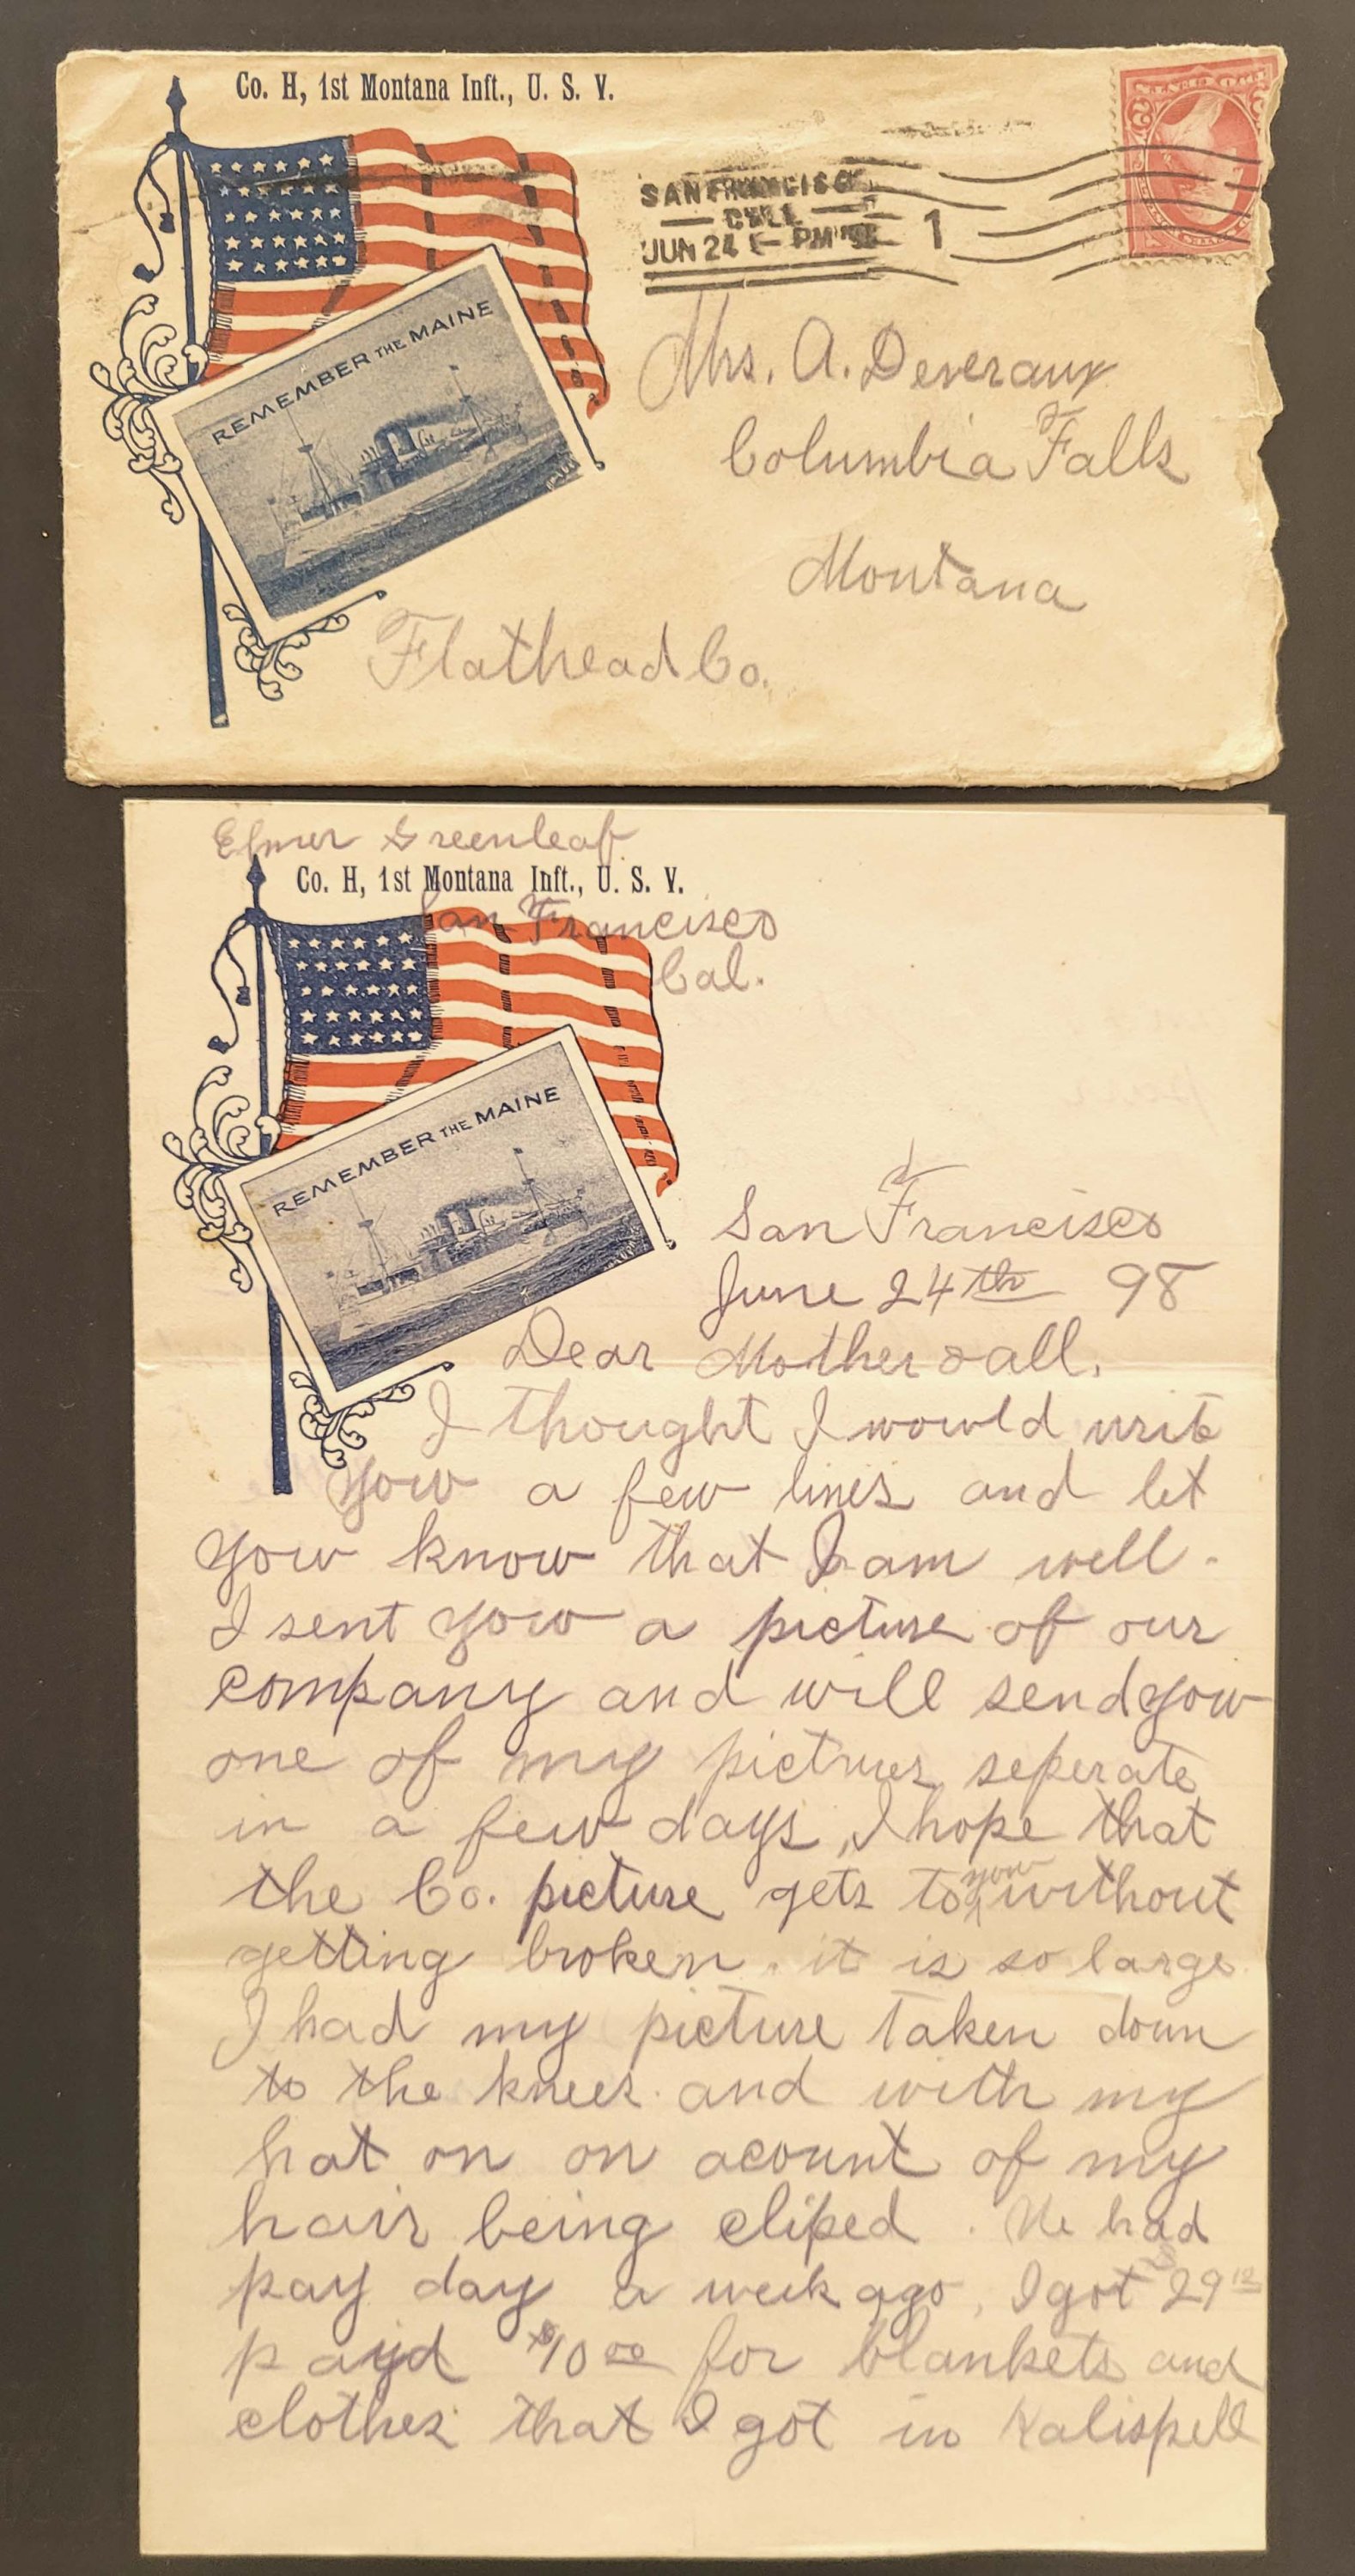 Co. H, 1st Montana Inft., U. S. V.
REMEMBER THE MAINE
SAN FRANCISCO
CAL
JUN 24 PM '98
1
Mrs. A. Deveraux
Columbia Falls
Montana
Flathead Co.
Elmer Greenleaf
Co. H, 1st Montana Inft., U. S. V.
San Francisco
Cal.
REMEMBER THE MAINE
San Francisco
June 24th 98
Dear Mother & all.
I thought I would write
yow a few lines and let
yow know that I am well.
I sent yow a picture of our
company and will send yow
one of my pictures seperate
in a few days, I hope that
the Co. picture gets to yow without
getting broken. it is so large
I had my picture taken down
to the knees and with my
hat on on acount of my
hair being cliped. We had
pay day a week ago, I got $29 12
payd $10 00 for blankets and
clothes that I got in Kalispell